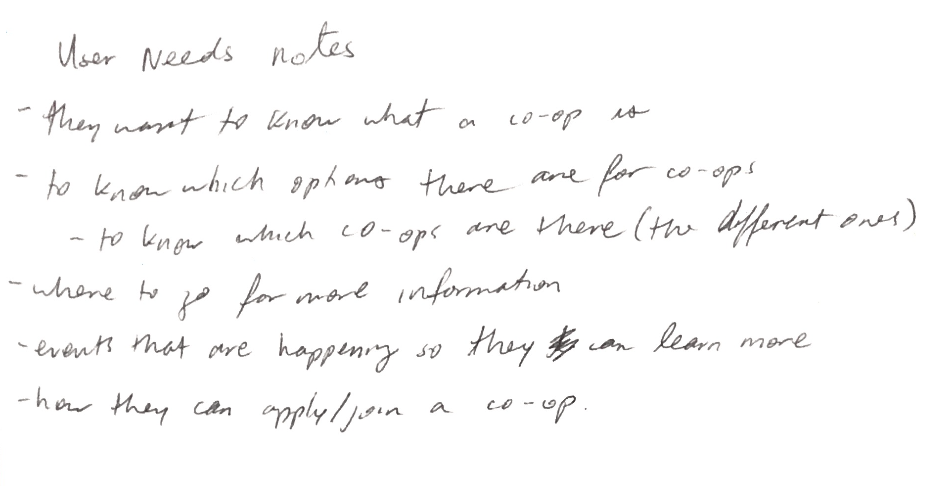 User Needs notes
- they want to know what a co-op is
- to know which options there are for co-ops
- to know which co-ops are there (the different ones)
- where to go for more information
- events that are happening so they can learn more
- how they can apply/join a co-op.